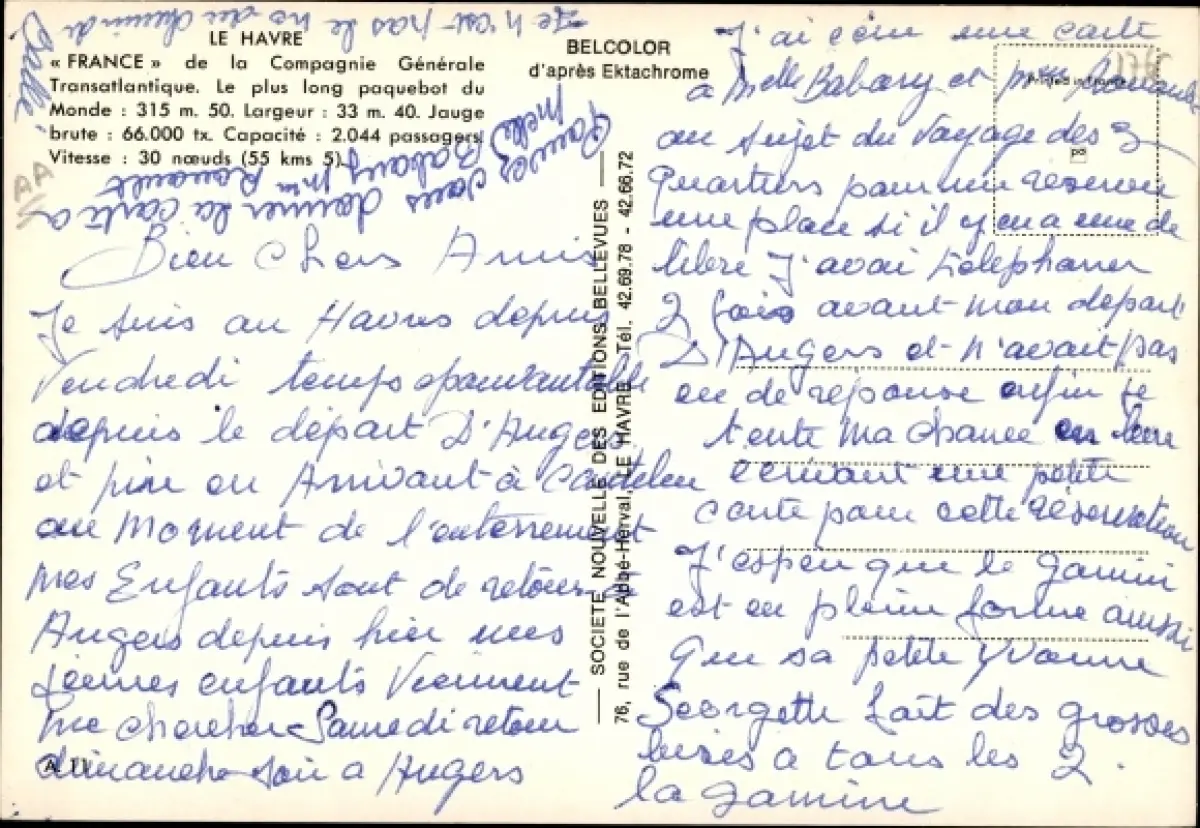 LE HAVRE
« FRANCE » de la Compagnie Générale
Transatlantique. Le plus long paquebot du
Monde : 315 m. 50. Largeur : 33 m. 40. Jauge
brute : 66.000 tx. Capacité : 2.044 passagers.
Vitesse : 30 nœuds (55 kms 5).
BELCOLOR
d'après Ektachrome
Printed in France
AA
Je n'est pas le no du
Pouvez vous donner la carte a
Melle Babary Mme Rouault
Bien Chers Amis
Je suis au Havres depuis
Vendredi temps epouvantable
depuis le départ D'Angers
et pire en Arrivant à Canteleu
au Moment de l'enterrement
Mes Enfants sont de retour a
Angers depuis hier mes
jeunes enfants Viennent
me chercher Samedi retour
dimanche soir a Angers
A 11
SOCIETE NOUVELLE DES EDITIONS BELLEVUES
76, rue de l'Abbé-Herval, LE HAVRE Tél. 42.69.78 - 42.66.72
J'ai écrit une carte
a Melle Babary et Mme Rouault
au sujet du Voyage des 3
Quartiers pour me réserver
une place si il y en a une de
libre J'avai téléphoner
2 fois avant mon depart
D'Angers et n'avait pas
eu de réponse enfin je
tente Ma chance en leur
ecrivant une petite
carte pour cette réservation
J'espere que le gamin
est en pleine forme aussi
que sa petite Yvonne
Georgette fait des grosses
bises a tous les 2.
la gamine